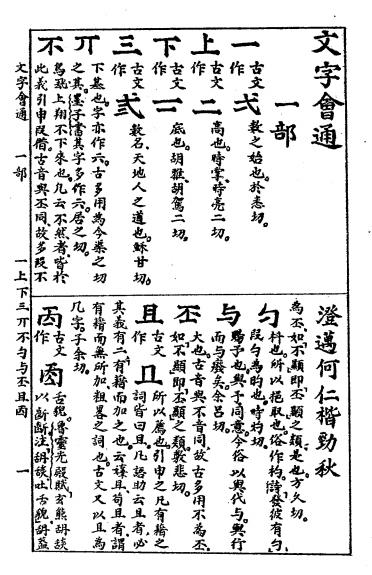 文字會通
一部
一 古文作弌 數之始也。於悉切。
上 古文作二 高也。時掌、時亮二切。
下 古文作二 底也。胡雅胡駕二切。
三 古文作弎 數名、天地人之道也。穌甘切。
丌 下基也。字亦作亓。古多用為今渠之切
之其。墨子書其字多作亓。居之切。
不 鳥飛上翔不下來也。凡云不然者、皆於
此義引申叚借。古音與丕同、故多叚不
文字會通 一部 一上下三丌不勺与丕且㐁 一
澄邁何仁楷勁秋
為丕、如不顯卽丕顯之類、是也。方久切。
勺 枓也。所以挹取也。俗作杓。詩發彼有勺、
叚勺為旳也。時灼切。
与 賜予也。與予同意。今俗以與代与。與行
而与廢矣。余呂切。
丕 大也。古音與不音同、故古多用不為丕、
如不顯卽丕顯之類。敷悲切。
且 古文作 所以薦也。引申之凡有藉之
詞皆曰且。凡語助云且者、必
其義有二、有藉而加之也。云且苟且者、謂
有藉而無所加、粗畧之詞也。古文又以且為
几字。子余切。
㐁 古文作 舌皃。魯靈光殿賦玄熊
以齗齗注、吐舌皃。